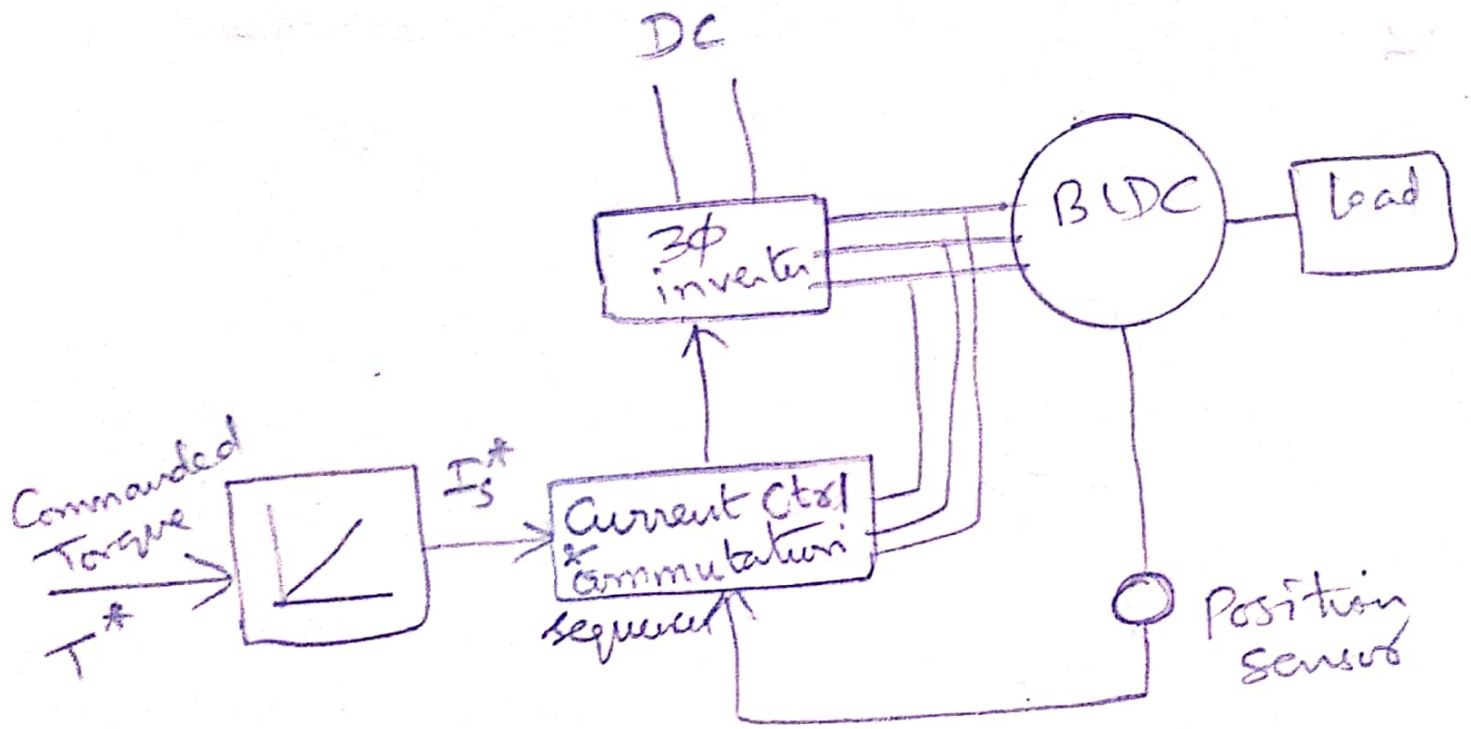 DC
3Φ
inverter
BLDC
load
Commanded
Torque
T*
Is*
Current Ctrl
&
commutation
sequencer
Position
sensor